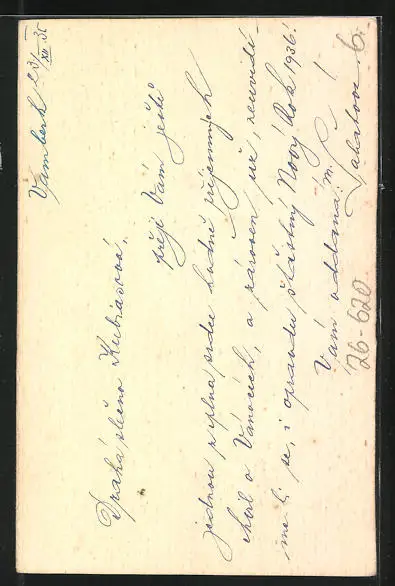 Vamberk 23/XII 35
Drahá slečno Kubiasová,
přeji Vám ještě
jednou z plna srdce hodně příjemných
chvil o Vánocích, a zároveň už, neuvidí-
me-li se, i opravdu šťastný Nový Rok 1936!
Vám oddaná:
26-620